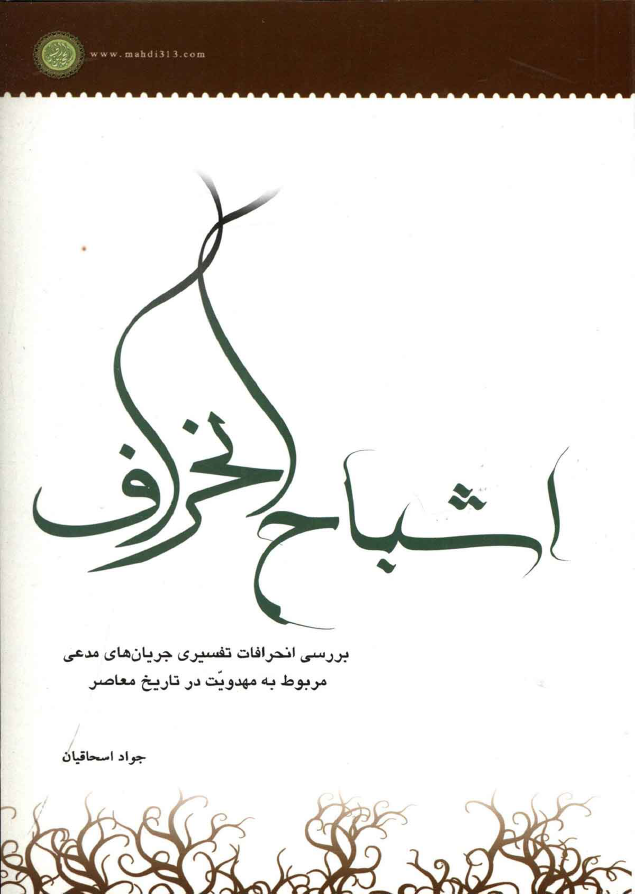 www.mahdi313.com
اشباح انحراف
بررسی انحرافات تفسیری جریان‌های مدعی
مربوط به مهدویّت در تاریخ معاصر
جواد اسحاقیان